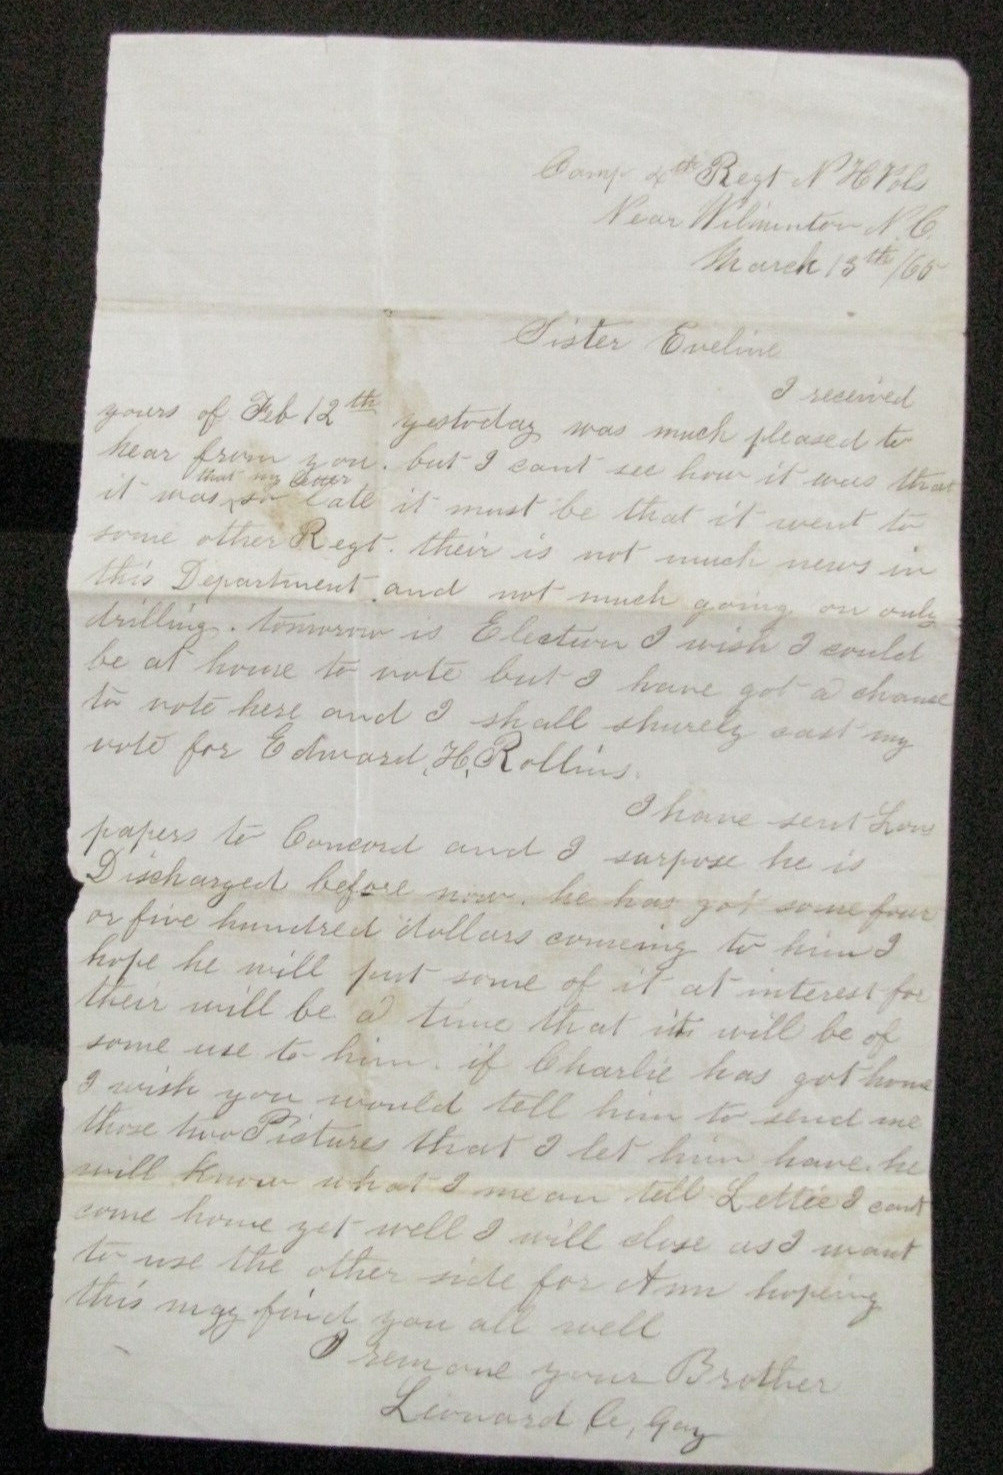 Camp 4th Regt N H Vols
Near Wilminton N. C.
March 13th /65
Sister Eveline
I received
yours of Feb 12th yestoday was much pleased to
hear from you. but I cant see how it was that
that my letter
it was so late it must be that it went to
some other Regt. their is not much news in
this Department and not much going on only
drilling. tomorrow is Election I wish I could
be at home to vote but I have got a chance
to vote here and I shall shurely cast my
vote for Edward, H, Rollins.
I have sent
papers to Concord and I surpose he is
Discharged before now. he has got some four
or five hundred dollars comeing to him I
hope he will put some of it at interest for
their will be a time that it will be of
some use to him. if Charlie has got home
I wish you would tell him to send me
those two Pictures that I let him have. he
will know what I mean tell Lettie I cant
come home yet well I will close as I want
to use the other side for Ann hopeing
this may find you all well
I remane your Brother
Leonard C, Gay